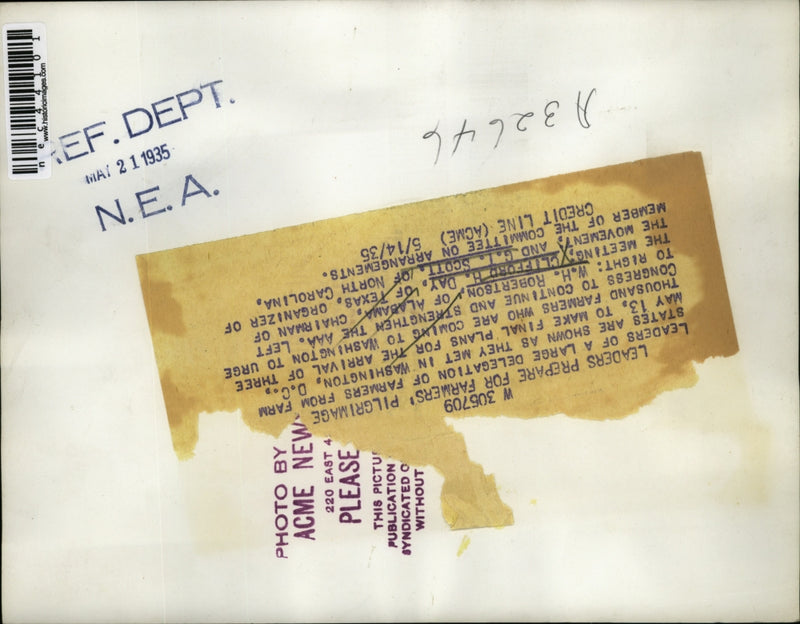 nec44101
www.historicimages.com
REF. DEPT.
MAY 21 1935
N.E.A.
A32646
W 305709
LEADERS PREPARE FOR FARMERS' PILGRIMAGE
LEADERS OF A LARGE DELEGATION OF FARMERS FROM FARM
STATES ARE SHOWN AS THEY MET IN WASHINGTON, D.C.,
MAY 13, TO MAKE FINAL PLANS FOR THE ARRIVAL OF THREE
THOUSAND FARMERS WHO ARE COMING TO WASHINGTON TO URGE
CONGRESS TO CONTINUE AND STRENGTHEN THE AAA. LEFT
TO RIGHT: W.H. ROBERTSON, OF ALABAMA, CHAIRMAN OF
THE MEETING; CLIFFORD H. DAY, OF TEXAS, ORGANIZER OF
THE MOVEMENT; AND G.T. SCOTT, OF NORTH CAROLINA,
MEMBER OF THE COMMITTEE ON ARRANGEMENTS.
CREDIT LINE (ACME) 5/14/35
PHOTO BY
ACME NEW
220 EAST 4
PLEASE
THIS PICTU
PUBLICATION
SYNDICATED O
WITHOUT